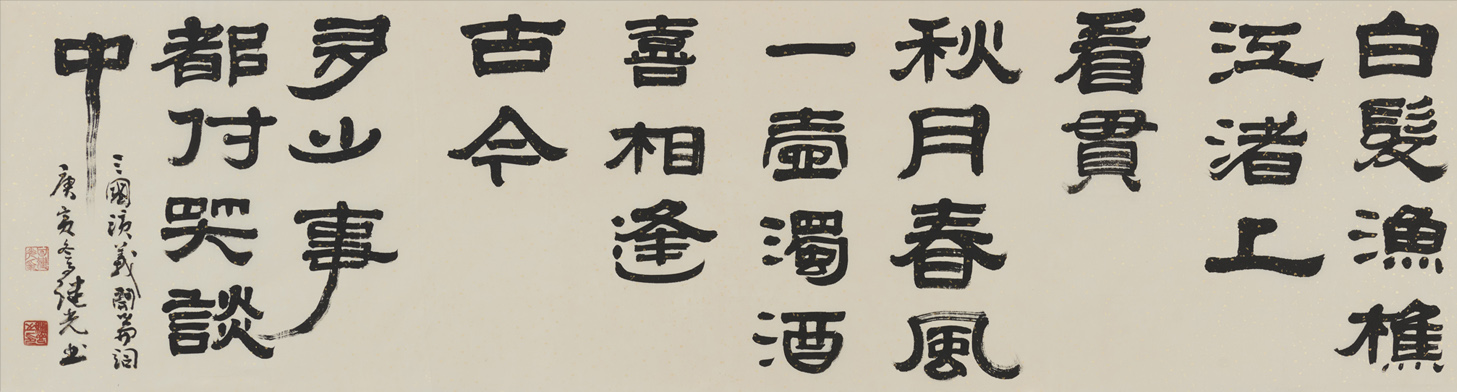 白髮漁樵
江渚上
看貫
秋月春風
一壺濁酒
喜相逢
古今
多少事
都付笑談
中
三國演義開篇詞
庚寅冬光书